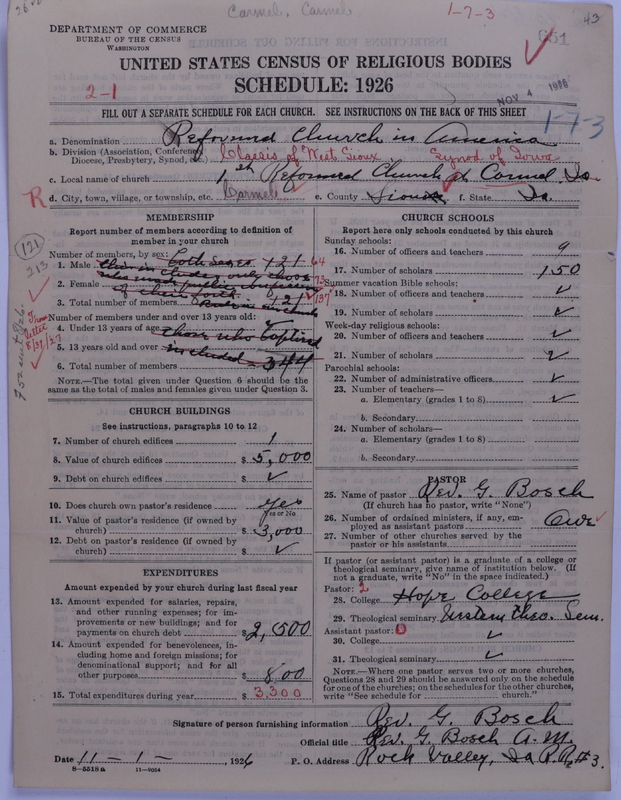 Carmel, Carmel
1-7-3
43
DEPARTMENT OF COMMERCE
BUREAU OF THE CENSUS
WASHINGTON
UNITED STATES CENSUS OF RELIGIOUS BODIES
SCHEDULE: 1926
2-1
NOV 4 1926
FILL OUT A SEPARATE SCHEDULE FOR EACH CHURCH. SEE INSTRUCTIONS ON THE BACK OF THIS SHEET
1-7-3
a. Denomination Reformed Church in America
b. Division (Association, Conference, Diocese, Presbytery, Synod, etc.) Classis of West Sioux Synod of Iowa
c. Local name of church 1st Reformed Church of Carmel Ia.
R d. City, town, village, or township, etc. Carmel e. County Sioux f. State Ia.
MEMBERSHIP
Report number of members according to definition of member in your church
Number of members, by sex:
1. Male both sexes 121 64
2. Female 73
3. Total number of members 121 137
Number of members under and over 13 years old:
4. Under 13 years of age those who baptized
5. 13 years and over included - 344
6. Total number of members
NOTE.—The total given under Question 6 should be the same as the total of males and females given under Question 3.
121
213
From letter
CHURCH BUILDINGS
See instructions, paragraphs 10 to 12
7. Number of church edifices 1
8. Value of church edifices $ 5,000
9. Debt on church edifices $ ✓
10. Does church own pastor's residence yes
Yes or No
11. Value of pastor's residence (if owned by church) $ 3,000
12. Debt on pastor's residence (if owned by church) $ ✓
EXPENDITURES
Amount expended by your church during last fiscal year
13. Amount expended for salaries, repairs, and other running expenses; for improvements or new buildings; and for payments on church debt $ 2,500
14. Amount expended for benevolences, including home and foreign missions; for denominational support; and for all other purposes $ 800
15. Total expenditures during year $ 3,300
CHURCH SCHOOLS
Report here only schools conducted by this church
Sunday schools:
16. Number of officers and teachers 9
17. Number of scholars 150
Summer vacation Bible schools:
18. Number of officers and teachers ✓
19. Number of scholars ✓
Week-day religious schools:
20. Number of officers and teachers ✓
21. Number of scholars ✓
Parochial schools:
22. Number of administrative officers ✓
23. Number of teachers—
a. Elementary (grades 1 to 8) ✓
b. Secondary
24. Number of scholars—
a. Elementary (grades 1 to 8)
b. Secondary
PASTOR
25. Name of pastor Rev. G. Bosch
(If church has no pastor, write "None")
26. Number of ordained ministers, if any, employed as assistant pastors One
27. Number of other churches served by the pastor or his assistants
If pastor (or assistant pastor) is a graduate of a college or theological seminary, give name of institution below. (If not a graduate, write "No" in the space indicated.)
Pastor: 2
28. College Hope College
29. Theological seminary Western Theo. Sem.
Assistant pastor: 0
30. College ✓
31. Theological seminary ✓
NOTE.—Where one pastor serves two or more churches, Questions 28 and 29 should be answered only on the schedule for one of the churches; on the schedules for the other churches, write "See schedule for church."
Signature of person furnishing information Rev. G. Bosch
Official title Rev. G. Bosch A. M.
Date 11-1-, 1926 P. O. Address Rock Valley, Ia R.R. #3.
8-5518a 11-9054